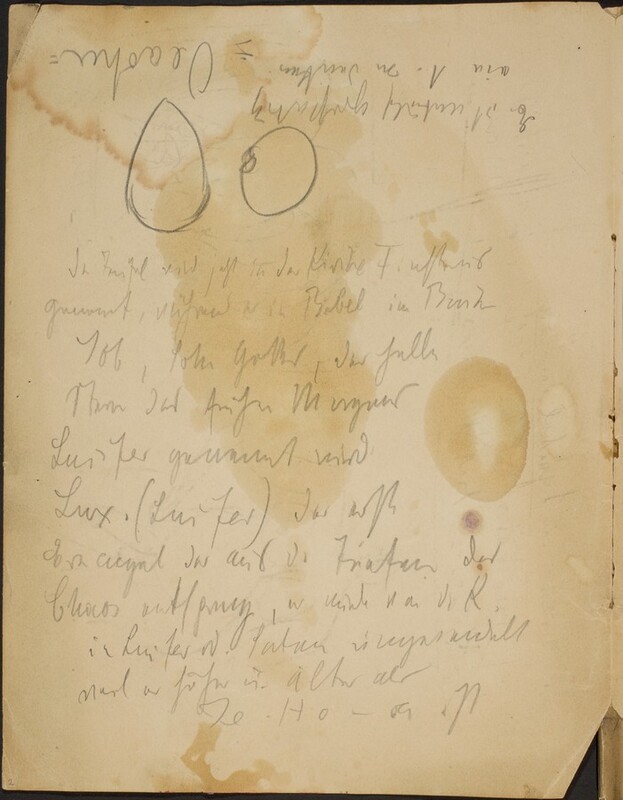 Der Teufel wird jetzt in der Kirche Finsternis
genannt, während er in Bibel im Buch
Job, Sohn Gottes, der helle
Stern des frühen Morgens
Luzifer genannt wird
Lux. (Luzifer) der erste
Erzengel der aus den Tiefen des
Chaos entsprang, er wurde von d. K.
in Luzifer od. Satan umgewandelt
weil er höher u. älter als
Je-Ho-va ist